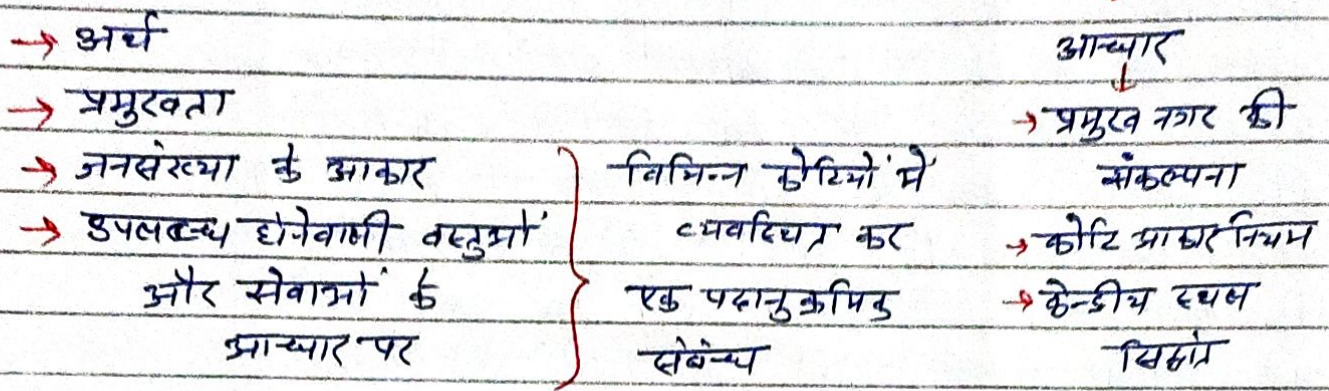 → अर्थ
→ प्रमुखता
→ जनसंख्या के आकार
→ उपलब्ध होनेवाली वस्तुओं
और सेवाओं के
आधार पर
विभिन्न कोटियों में
व्यवस्थित कर
एक पदानुक्रमिक
संबंध
आधार
↓
→ प्रमुख नगर की
संकल्पना
→ कोटि आकार नियम
→ केन्द्रीय स्थल
सिद्धांत